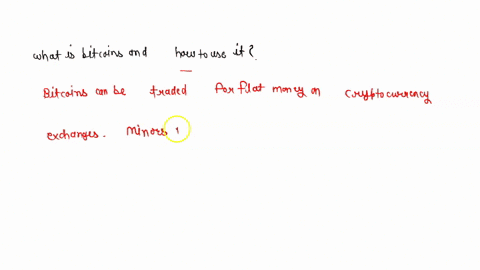 what is bitcoins and how to use it?
Bitcoins can be traded for fiat money on cryptocurrency
exchanges. Minors